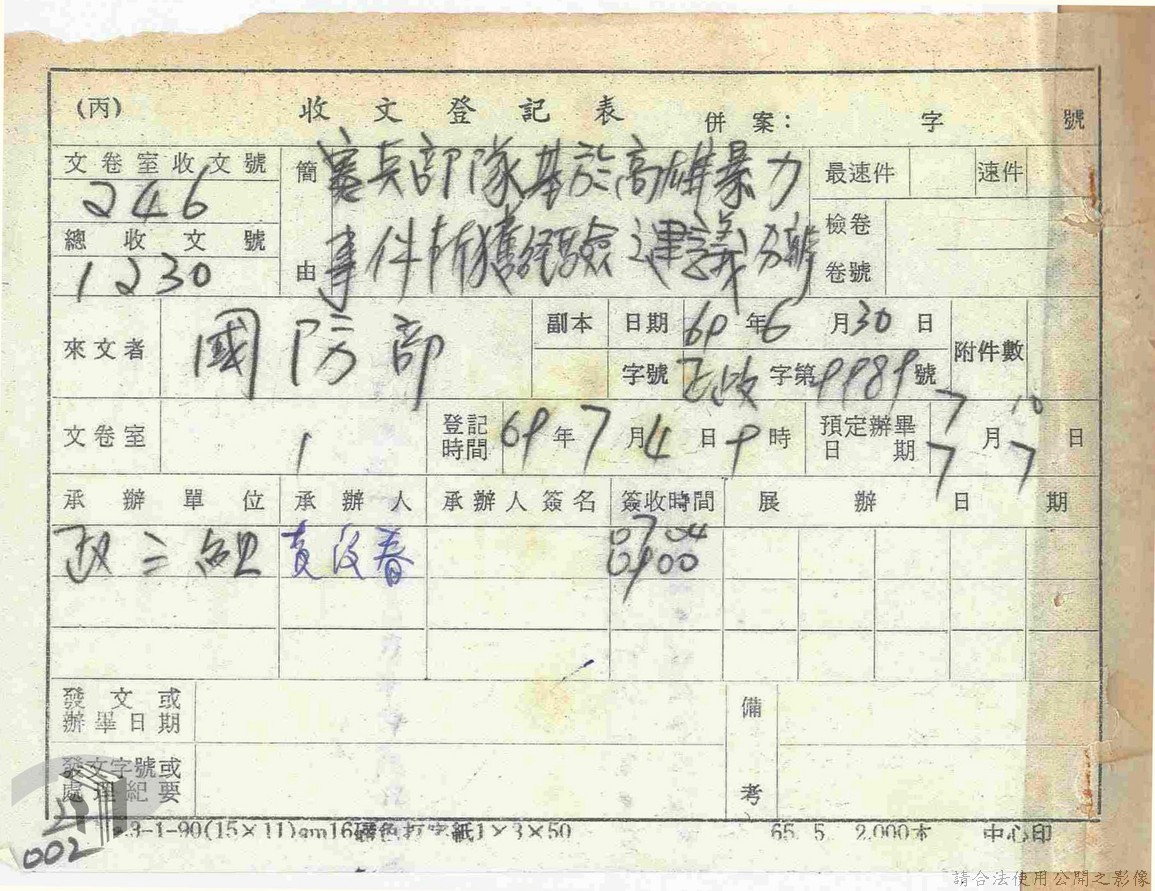 (丙) 收文登記表 併案: 字 號
文卷室收文號 簡 憲兵部隊基於高雄暴力 最速件 速件
246
總收文號 由 事件所獲經驗之建議分辦 檢卷
1230 卷號
來文者 國防部 副本 日期 69年6月30日 附件數
字號 正政字第9989號
文卷室 1 登記時間 69年7月4日9時 預定辦畢日期 7 10
7月7日
承辦單位 承辦人 承辦人簽名 簽收時間 展辦日期
政二組 黃 春 0704
0900
發文或
辦畢日期 備
發文字號或
處理紀要 考
3-1-90(15×11)gm16磅色打字紙1×3×50 65.5.2,000本 中心印
002
請合法使用公開之影像